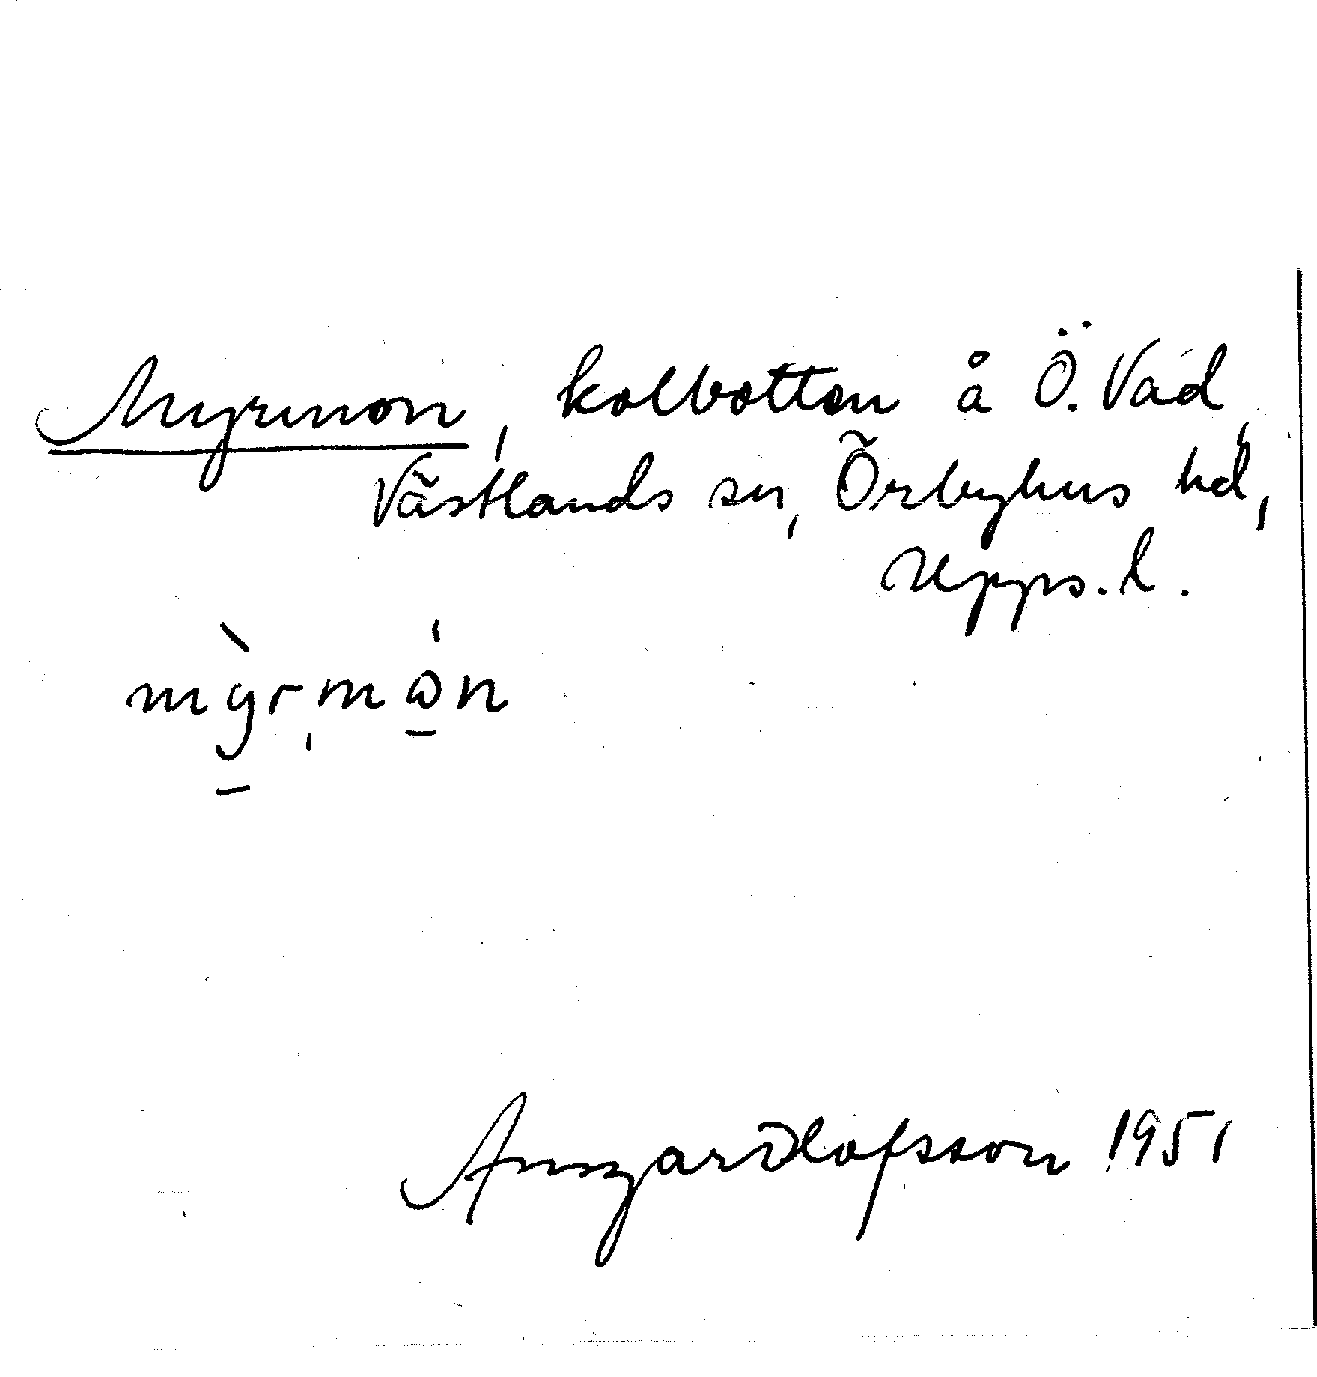 Myrmon, kolbotten å Ö. Vad,
Västlands sn, Örbyhus hd,
Upps. l.
mỳr̩mɷ̀n
Ansgar Olofsson 1951